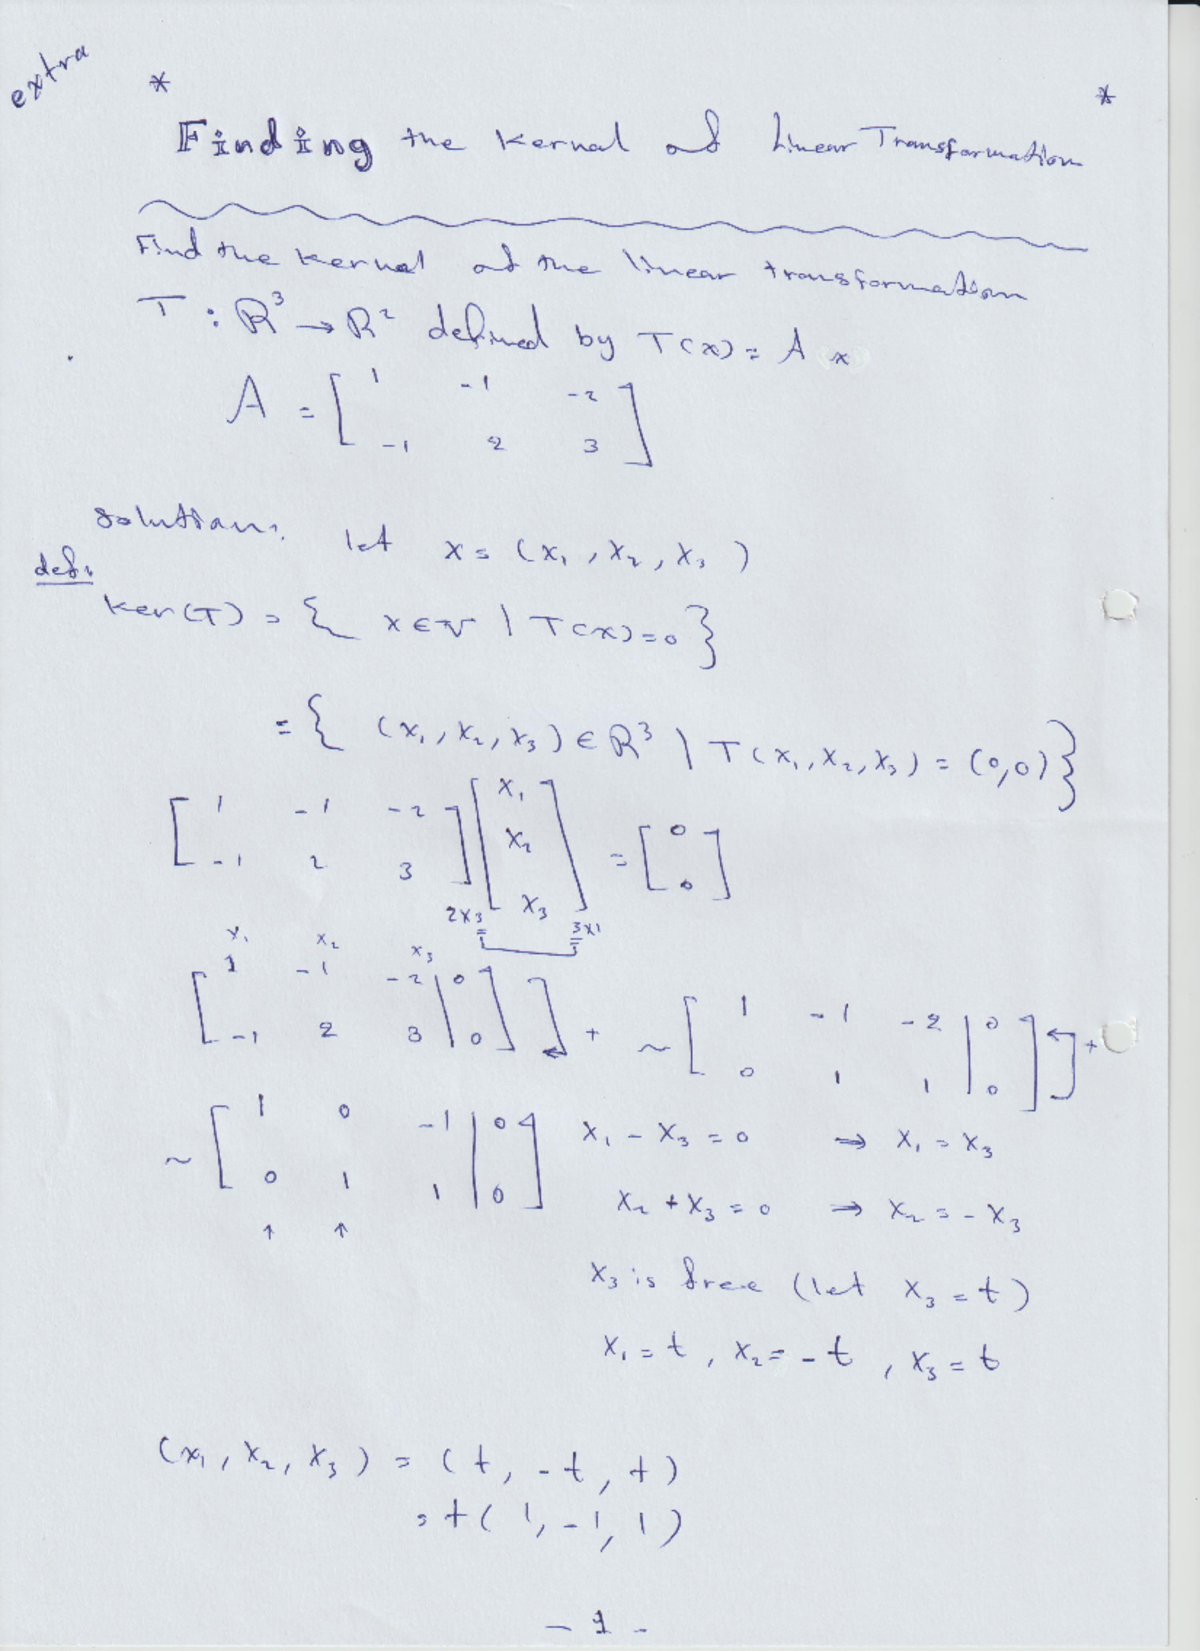 extra
* *
Finding the Kernal of Linear Transformation
Find the kernel of the linear transformation
T : R³ → R² defined by T(x) = A x
A = [ 1 -1 -2
-1 2 3 ]
solution: let x = (x₁, x₂, x₃)
def:
Ker(T) = { x ∈ V | T(x) = 0 }
= { (x₁, x₂, x₃) ∈ R³ | T(x₁, x₂, x₃) = (0,0) }
[ 1 -1 -2 ] [ x₁ ] = [ 0 ]
[ -1 2 3 ] [ x₂ ] [ 0 ]
[ x₃ ]
2x3 3x1
x₁ x₂ x₃
[ 1 -1 -2 | 0 ] + ~ [ 1 -1 -2 | 0 ] +
[ -1 2 3 | 0 ] [ 0 1 1 | 0 ]
~ [ 1 0 -1 | 0 ] x₁ - x₃ = 0 → x₁ = x₃
[ 0 1 1 | 0 ] x₂ + x₃ = 0 → x₂ = - x₃
↑ ↑
x₃ is free (let x₃ = t)
x₁ = t , x₂ = - t , x₃ = t
(x₁, x₂, x₃) = (t, -t, t)
= t(1, -1, 1)
- 1 -